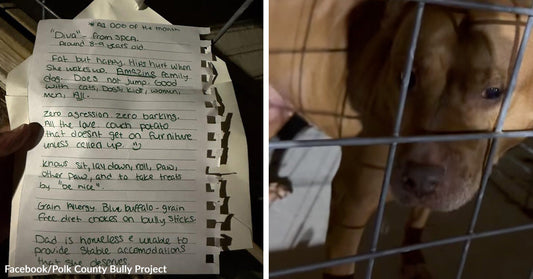 *AS DOG OF the month
"Diva" - from SPCA.
Around 8-9 years old.
Fat but happy. Hips hurt when
She wakes up. Amazing family
dog. Does not jump. Good
with cats, Dogs, kids, women,
men, All.
Zero agression zero barking.
All the love. couch potato
that doesnt get on furniture
unless called up. :)
Knows sit, lay down, roll, paw,
other paw, and to take treats
by "be nice".
Grain Allergy. Blue buffalo - grain
free diet chokes on bully sticks.
Dad is homeless & unable to
provide stable accomodations
that she deserves.
Facebook/Polk County Bully Project